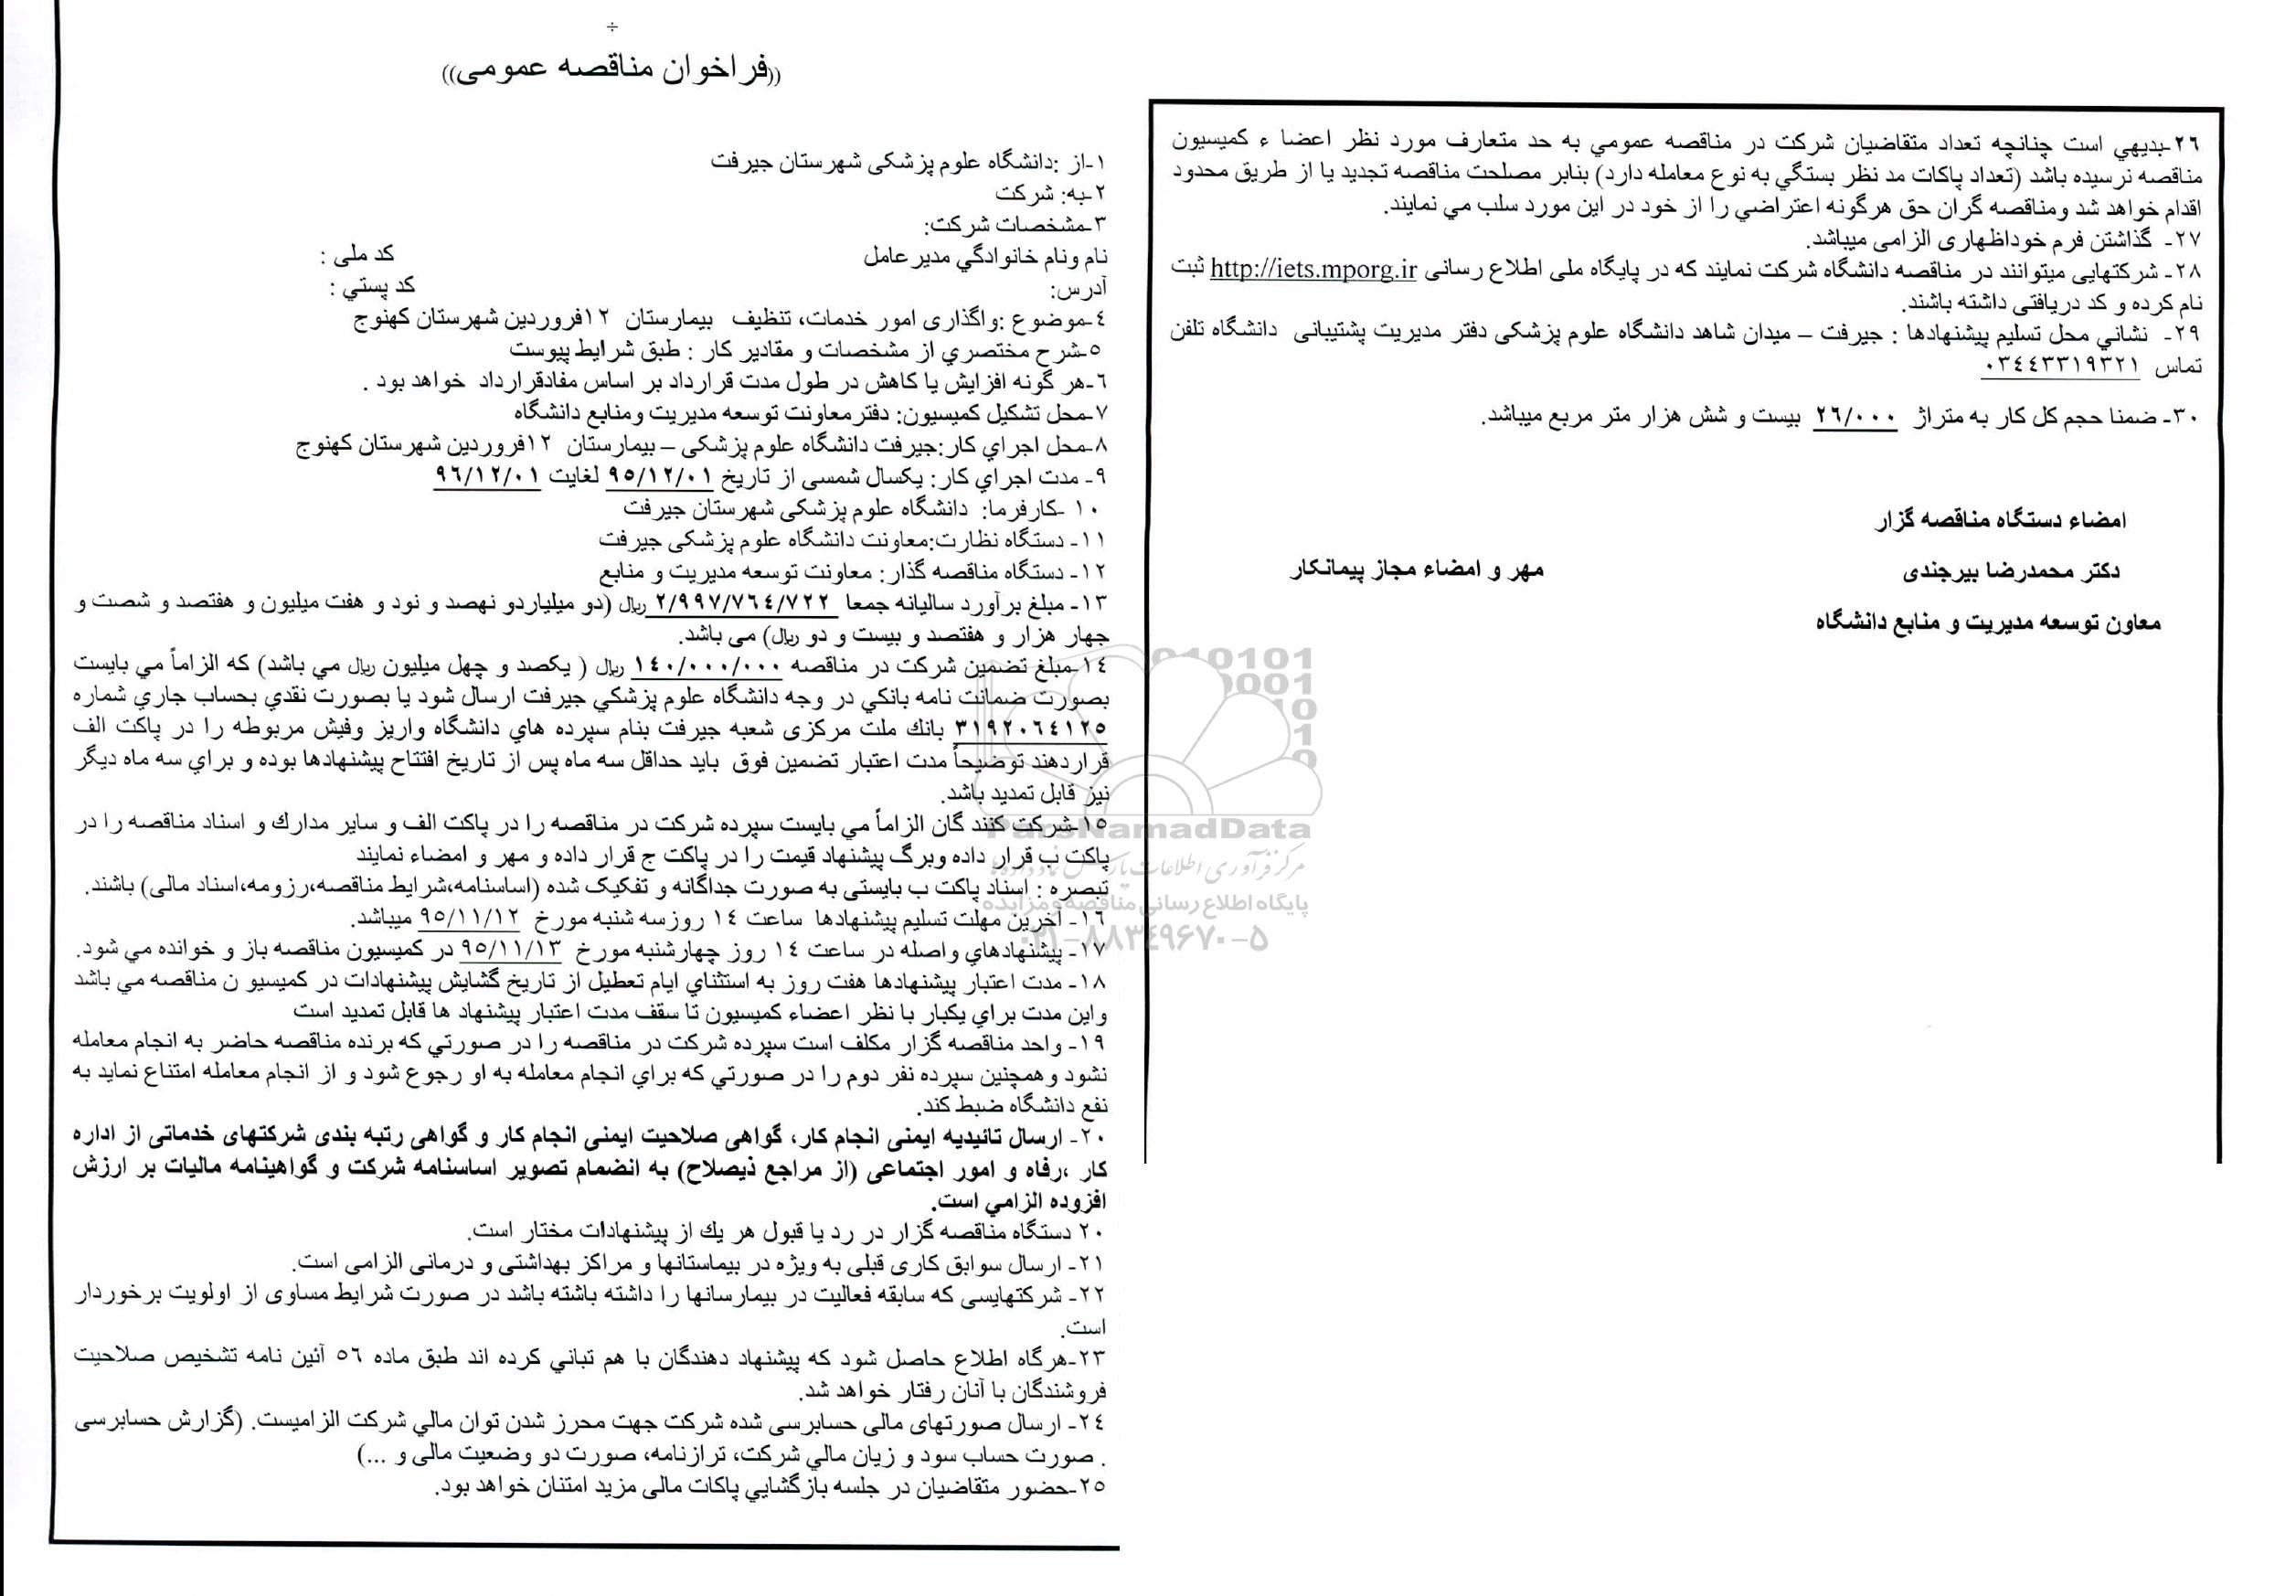 ÷
((فراخوان مناقصه عمومی))
۱-از :دانشگاه علوم پزشکی شهرستان جیرفت
۲-به: شرکت
۳-مشخصات شرکت:
نام ونام خانوادگي مدیرعامل کد ملی :
آدرس: کد پستي :
٤-موضوع :واگذاری امور خدمات، تنظیف بیمارستان ۱۲فروردین شهرستان کهنوج
٥-شرح مختصري از مشخصات و مقادیر کار : طبق شرایط پیوست
٦-هر گونه افزایش یا کاهش در طول مدت قرارداد بر اساس مفادقرارداد خواهد بود .
۷-محل تشکیل کمیسیون: دفترمعاونت توسعه مدیریت ومنابع دانشگاه
۸-محل اجراي کار:جیرفت دانشگاه علوم پزشکی – بیمارستان ۱۲فروردین شهرستان کهنوج
۹- مدت اجراي کار: یکسال شمسی از تاریخ ۹٥/۱۲/۰۱ لغایت ۹٦/۱۲/۰۱
۱۰ -کارفرما: دانشگاه علوم پزشکی شهرستان جیرفت
۱۱- دستگاه نظارت:معاونت دانشگاه علوم پزشکی جیرفت
۱۲- دستگاه مناقصه گذار: معاونت توسعه مدیریت و منابع
۱۳- مبلغ برآورد سالیانه جمعا ۲/۹۹۷/۷٦٤/۷۲۲ ریال (دو میلیاردو نهصد و نود و هفت میلیون و هفتصد و شصت و
جهار هزار و هفتصد و بیست و دو ریال) می باشد.
۱٤-مبلغ تضمین شرکت در مناقصه ۱٤۰/۰۰۰/۰۰۰ ریال ( یکصد و چهل میلیون ریال مي باشد) که الزاماً مي بایست
بصورت ضمانت نامه بانکي در وجه دانشگاه علوم پزشکي جیرفت ارسال شود یا بصورت نقدي بحساب جاري شماره
۳۱۹۲۰٦٤۱۲٥ بانك ملت مرکزی شعبه جیرفت بنام سپرده هاي دانشگاه واریز وفیش مربوطه را در پاکت الف
قراردهند توضیحاً مدت اعتبار تضمین فوق باید حداقل سه ماه پس از تاریخ افتتاح پیشنهادها بوده و براي سه ماه دیگر
نیز قابل تمدید باشد.
۱٥-شرکت کنند گان الزاماً مي بایست سپرده شرکت در مناقصه را در پاکت الف و سایر مدارك و اسناد مناقصه را در
پاکت ب قرار داده وبرگ پیشنهاد قیمت را در پاکت ج قرار داده و مهر و امضاء نمایند
تبصره : اسناد پاکت ب بایستی به صورت جداگانه و تفکیک شده (اساسنامه،شرایط مناقصه،رزومه،اسناد مالی) باشند.
۱٦- آخرین مهلت تسلیم پیشنهادها ساعت ۱٤ روزسه شنبه مورخ ۹٥/۱۱/۱۲ میباشد.
۱۷- پیشنهادهاي واصله در ساعت ۱٤ روز چهارشنبه مورخ ۹٥/۱۱/۱۳ در کمیسیون مناقصه باز و خوانده مي شود.
۱۸- مدت اعتبار پیشنهادها هفت روز به استثناي ایام تعطیل از تاریخ گشایش پیشنهادات در کمیسیو ن مناقصه مي باشد
واین مدت براي یکبار با نظر اعضاء کمیسیون تا سقف مدت اعتبار پیشنهاد ها قابل تمدید است
۱۹- واحد مناقصه گزار مکلف است سپرده شرکت در مناقصه را در صورتي که برنده مناقصه حاضر به انجام معامله
نشود و همچنین سپرده نفر دوم را در صورتي که براي انجام معامله به او رجوع شود و از انجام معامله امتناع نماید به
نفع دانشگاه ضبط کند.
۲۰- ارسال تائیدیه ایمنی انجام کار، گواهی صلاحیت ایمنی انجام کار و گواهی رتبه بندی شرکتهای خدماتی از اداره
کار ،رفاه و امور اجتماعی (از مراجع ذیصلاح) به انضمام تصویر اساسنامه شرکت و گواهینامه مالیات بر ارزش
افزوده الزامي است.
۲۰ دستگاه مناقصه گزار در رد یا قبول هر یك از پیشنهادات مختار است.
۲۱- ارسال سوابق کاری قبلی به ویژه در بیماستانها و مراکز بهداشتی و درمانی الزامی است.
۲۲- شرکتهایسی که سابقه فعالیت در بیمارسانها را داشته باشته باشد در صورت شرایط مساوی از اولویت برخوردار
است.
۲۳-هرگاه اطلاع حاصل شود که پیشنهاد دهندگان با هم تباني کرده اند طبق ماده ٥٦ آئین نامه تشخیص صلاحیت
فروشندگان با آنان رفتار خواهد شد.
۲٤- ارسال صورتهای مالی حسابرسی شده شرکت جهت محرز شدن توان مالي شرکت الزامیست. (گزارش حسابرسی
. صورت حساب سود و زیان مالي شرکت، ترازنامه، صورت دو وضعیت مالی و ...)
۲٥-حضور متقاضیان در جلسه بازگشایي پاکات مالی مزید امتنان خواهد بود.
۲٦-بدیهي است چنانچه تعداد متقاضیان شرکت در مناقصه عمومي به حد متعارف مورد نظر اعضا ء کمیسیون
مناقصه نرسیده باشد (تعداد پاکات مد نظر بستگي به نوع معامله دارد) بنابر مصلحت مناقصه تجدید یا از طریق محدود
اقدام خواهد شد ومناقصه گران حق هرگونه اعتراضي را از خود در این مورد سلب مي نمایند.
۲۷- گذاشتن فرم خوداظهاری الزامی میباشد.
۲۸- شرکتهایی میتوانند در مناقصه دانشگاه شرکت نمایند که در پایگاه ملی اطلاع رسانی http://iets.mporg.ir ثبت
نام کرده و کد دریافتی داشته باشند.
۲۹- نشاني محل تسلیم پیشنهادها : جیرفت – میدان شاهد دانشگاه علوم پزشکی دفتر مدیریت پشتیبانی دانشگاه تلفن
تماس ۰۳٤٤۳۳۱۹۳۲۱
۳۰- ضمنا حجم کل کار به متراژ ۲٦/۰۰۰ بیست و شش هزار متر مربع میباشد.
امضاء دستگاه مناقصه گزار
دکتر محمدرضا بیرجندی مهر و امضاء مجاز پیمانکار
معاون توسعه مدیریت و منابع دانشگاه
ParsNamadData
مرکز فرآوری اطلاعات پارس نماد داده ها
پایگاه اطلاع رسانی مناقصه و مزایده
۰۲۱-۸۸۳۴۹۶۷۰-۵